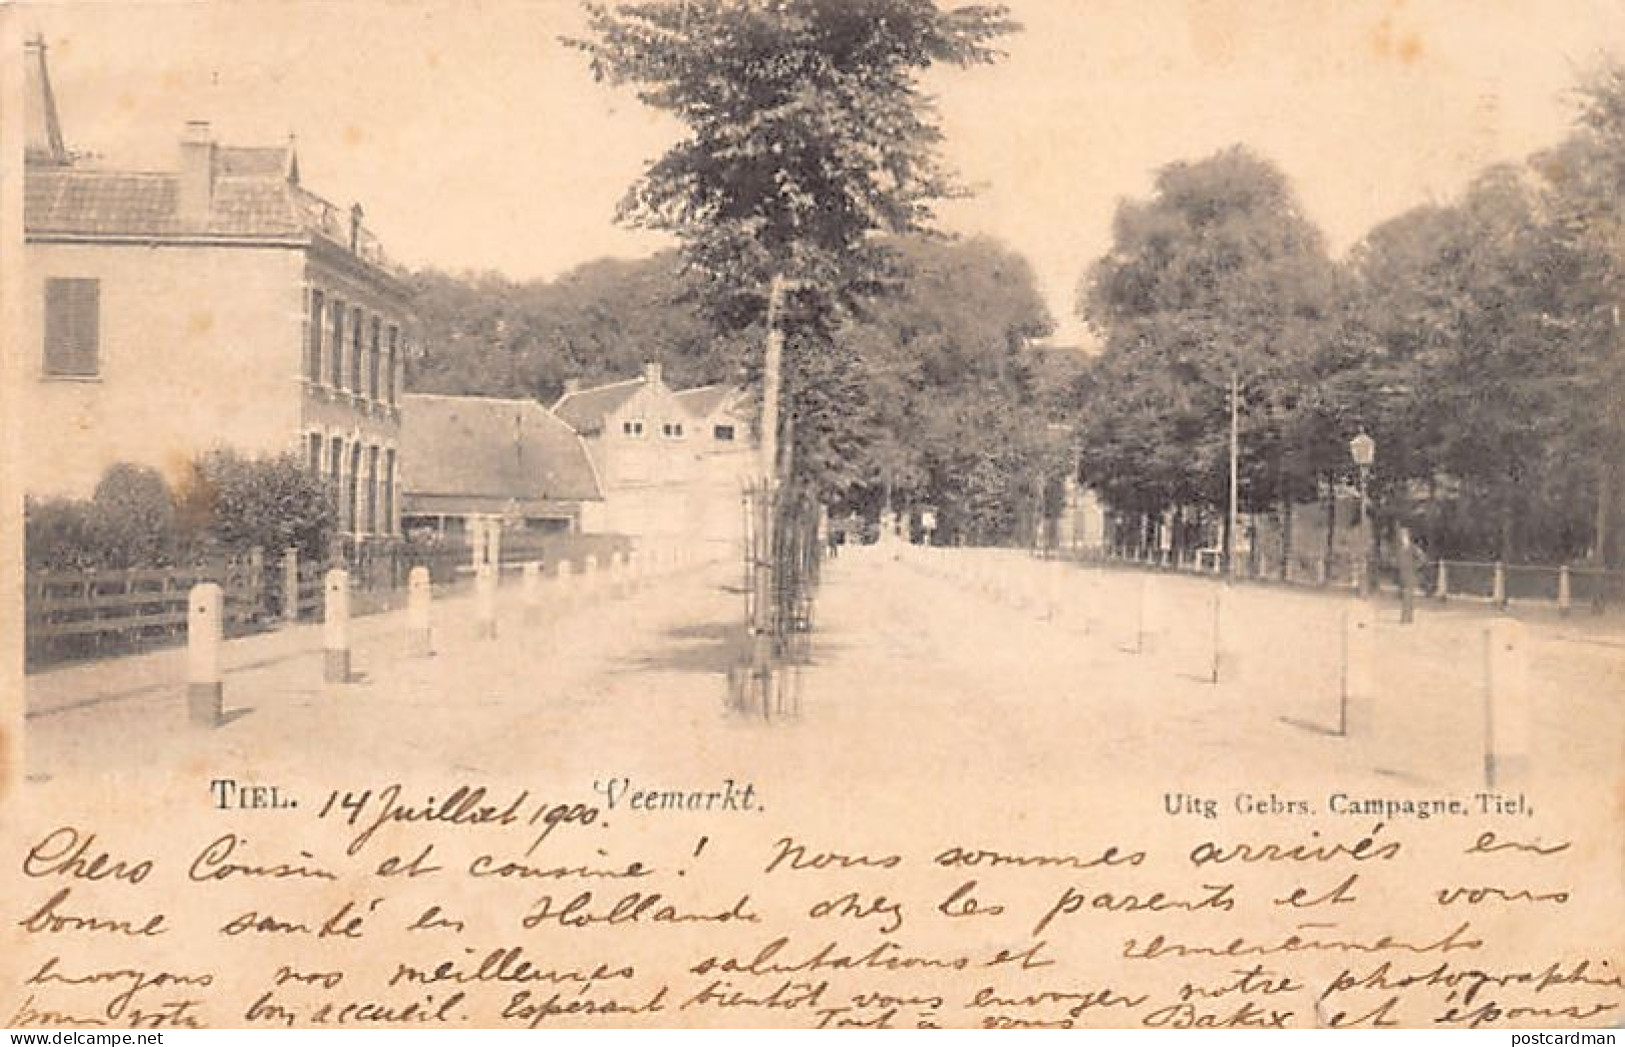 TIEL. 14 Juillet 1900. Veemarkt. Uitg Gebrs. Campagne, Tiel,
Chers Cousin et cousine! Nous sommes arrivés en
bonne santé en Hollande chez les parents et vous
envoyons nos meilleures salutations et remerciments
pour votre bon accueil. Espérant bientôt vous envoyer notre photographie
Tout à vous Bakx et épouse
postcardman